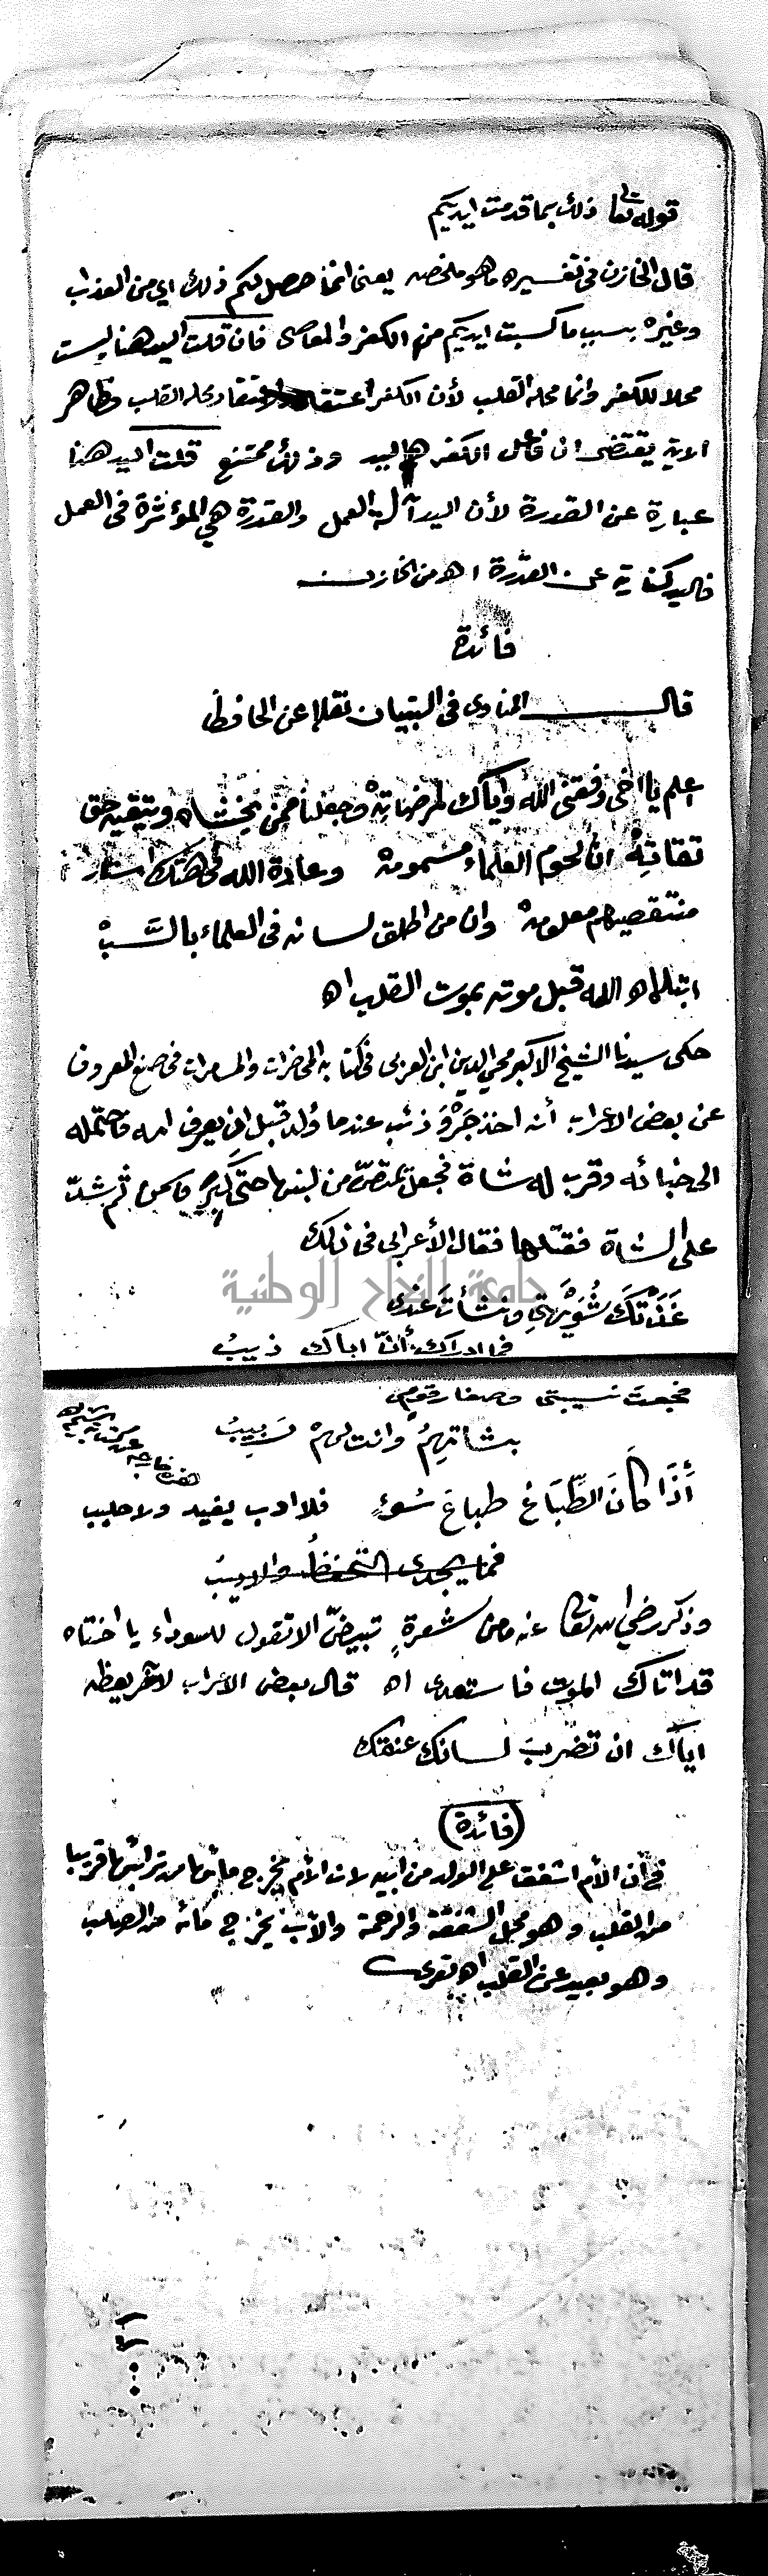 قوله تعا ذلك بما قدمت ايديكم
قال الخازن في تفسيره ما هو ملخصه يعني انما حصل لكم ذلك اي من العذاب
وغيره بسبب ما كسبت ايديكم من الكفر والمعاصى فان قلت اليد هنا ليست
محلا للكفر وانما محله القلب لأن الكفر اعتقاد والاعتقاد محله القلب وظاهر
الاية يقتضى ان فاعل الكفر هي اليد وذلك ممتنع قلت اليد هنا
عبارة عن القدرة لأن اليد آلة العمل والقدرة هي المؤثرة في العمل
فاليد كناية عن القدرة اهـ من الخازن
فائدة
قال المناوى في التبيان نقلا عن الحافظ
اعلم يا اخى وفقنى الله واياك لمرضاتهْ وجعلنا ممن يخشاه ويتقيه حق
تقاتهْ ان لحوم العلماء مسمومهْ وعادة الله في هتك استار
منتقصيهم معلومهْ وان من اطلق لسانه في العلماء بالسَّبْ
ابتلاه الله قبل موته بموت القلب اهـ
حكى سيدنا الشيخ الاكبر محي الدين ابن العربى في كتابه المحاضرات والمسامرات في صنع المعروف
عن بعض الاعراب أنه اخذ جَرْوَ ذئب عندما وُلد قبل ان يعرف امه فاحتمله
الى خبائه وقرب له شاة فجعل يمتصّ من لبنها حتى كبر وسمن ثم شدّ
على الشاة فقتلها فقال الأعرابى في ذلك
جامعة النجاح الوطنية
غَذَتْكَ شُوَيْهَتِي ونشأتَ عندى
فما ادراك أنّ اباك ذيبُ
فجعت نسيبتى وصغار قومى
بشاتهِمُ وانت لهمْ رَبيبُ
أذَا كَانَ الطِّبَاعُ طباعَ سُوءٍ فلا ادب يفيد ولا حليب
فما يجدى التحفظُ والاديبُ
وذكر رضي الله تعا عنه ما من شعرةٍ تبيضّ الا تقول للسوداء يا اختاه
قد اتاك الموت فاستعدى اهـ قال بعض الاعراب لآخر يعظه
اياك ان تضربَ لسانك عنقك
(فائدة)
في أن الأم اشفق على الولد من ابيه لان الأم يخرج ماؤها من ترائبها قريبا
من القلب وهو محل الشفقة والرحمة والأب يخرج مائه من الصلب
وهو بعيد عن القلب اهـ